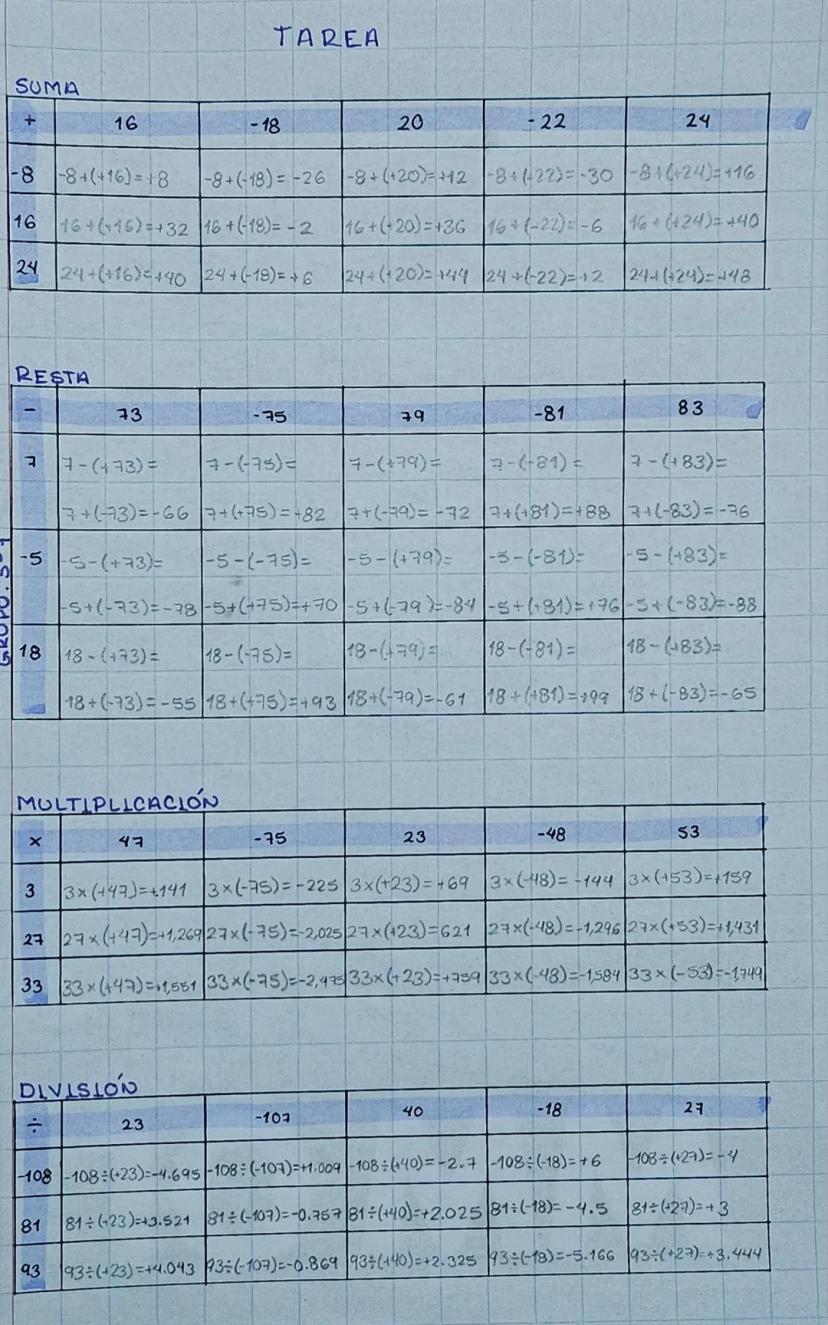 TAREA
SUMA
+ 16 -18 20 -22 24
-8 -8+(+16)=+8 -8+(-18)=-26 -8+(+20)=+12 -8+(-22)=-30 -8+(+24)=+16
16 16+(+16)=+32 16+(-18)=-2 16+(+20)=+36 16+(-22)=-6 16+(+24)=+40
24 24+(+16)=+40 24+(-18)=+6 24+(+20)=+44 24+(-22)=+2 24+(+24)=+48
RESTA
- 73 -75 79 -81 83
7 7-(+73)= 7-(-75)= 7-(+79)= 7-(-81)= 7-(+83)=
7+(-73)=-66 7+(+75)=+82 7+(-79)=-72 7+(+81)=+88 7+(-83)=-76
-5 -5-(+73)= -5-(-75)= -5-(+79)= -5-(-81)= -5-(+83)=
-5+(-73)=-78 -5+(+75)=+70 -5+(-79)=-84 -5+(+81)=+76 -5+(-83)=-88
18 18-(+73)= 18-(-75)= 18-(+79)= 18-(-81)= 18-(+83)=
18+(-73)=-55 18+(+75)=+93 18+(-79)=-61 18+(+81)=+99 18+(-83)=-65
MULTIPLICACIÓN
x 47 -75 23 -48 53
3 3×(+47)=+141 3×(-75)=-225 3×(+23)=+69 3×(-48)=-144 3×(+53)=+159
27 27×(+47)=+1,269 27×(-75)=-2,025 27×(+23)=621 27×(-48)=-1,296 27×(+53)=+1,431
33 33×(+47)=+1,551 33×(-75)=-2,475 33×(+23)=+759 33×(-48)=-1,584 33×(-53)=-1,749
DIVISIÓN
÷ 23 -107 40 -18 27
-108 -108÷(+23)=-4.695 -108÷(-107)=+1.009 -108÷(+40)=-2.7 -108÷(-18)=+6 -108÷(+27)=-4
81 81÷(+23)=+3.521 81÷(-107)=-0.757 81÷(+40)=+2.025 81÷(-18)=-4.5 81÷(+27)=+3
93 93÷(+23)=+4.043 93÷(-107)=-0.869 93÷(+40)=+2.325 93÷(-18)=-5.166 93÷(+27)=+3.444